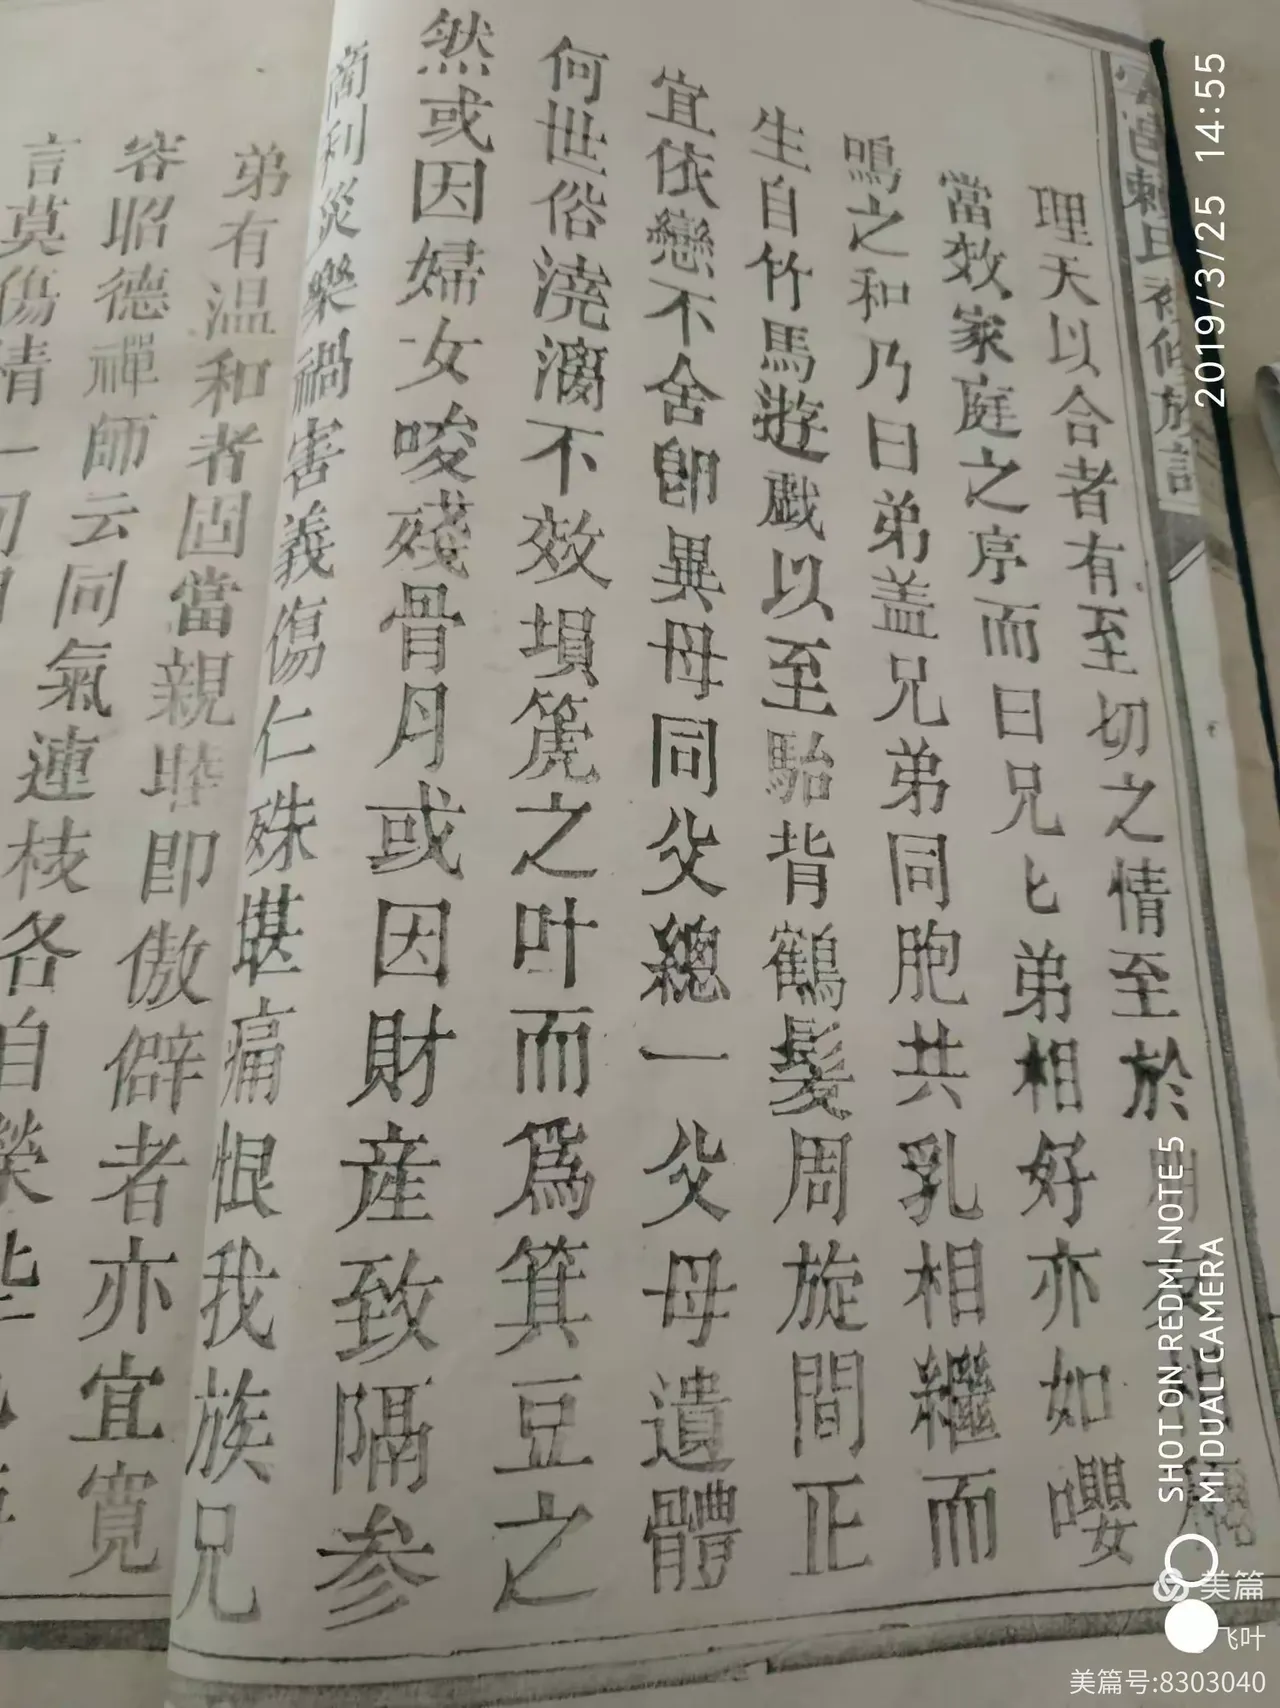 賴氏
理天以合者有至切之情至於
當效家庭之序而曰兄匕弟相好亦如嚶
鳴之和乃曰弟盖兄弟同胞共乳相繼而
生自竹馬遊戲以至駘背鶴髮周旋間正
宜依戀不舍卽異母同父總一父母遺體
何世俗澆漓不效塤篪之叶而爲箕豆之
然或因婦女唆殘骨月或因財産致隔参
商利災樂禍害義傷仁殊堪痛恨我族兄
弟有温和者固當親睦即傲僻者亦宜寛
容昭德禪師云同氣連枝各自榮
言莫傷情一
2019/3/25 14:55
SHOT ON REDMI NOTE 5
MI DUAL CAMERA
美篇
飞叶
美篇号:8303040